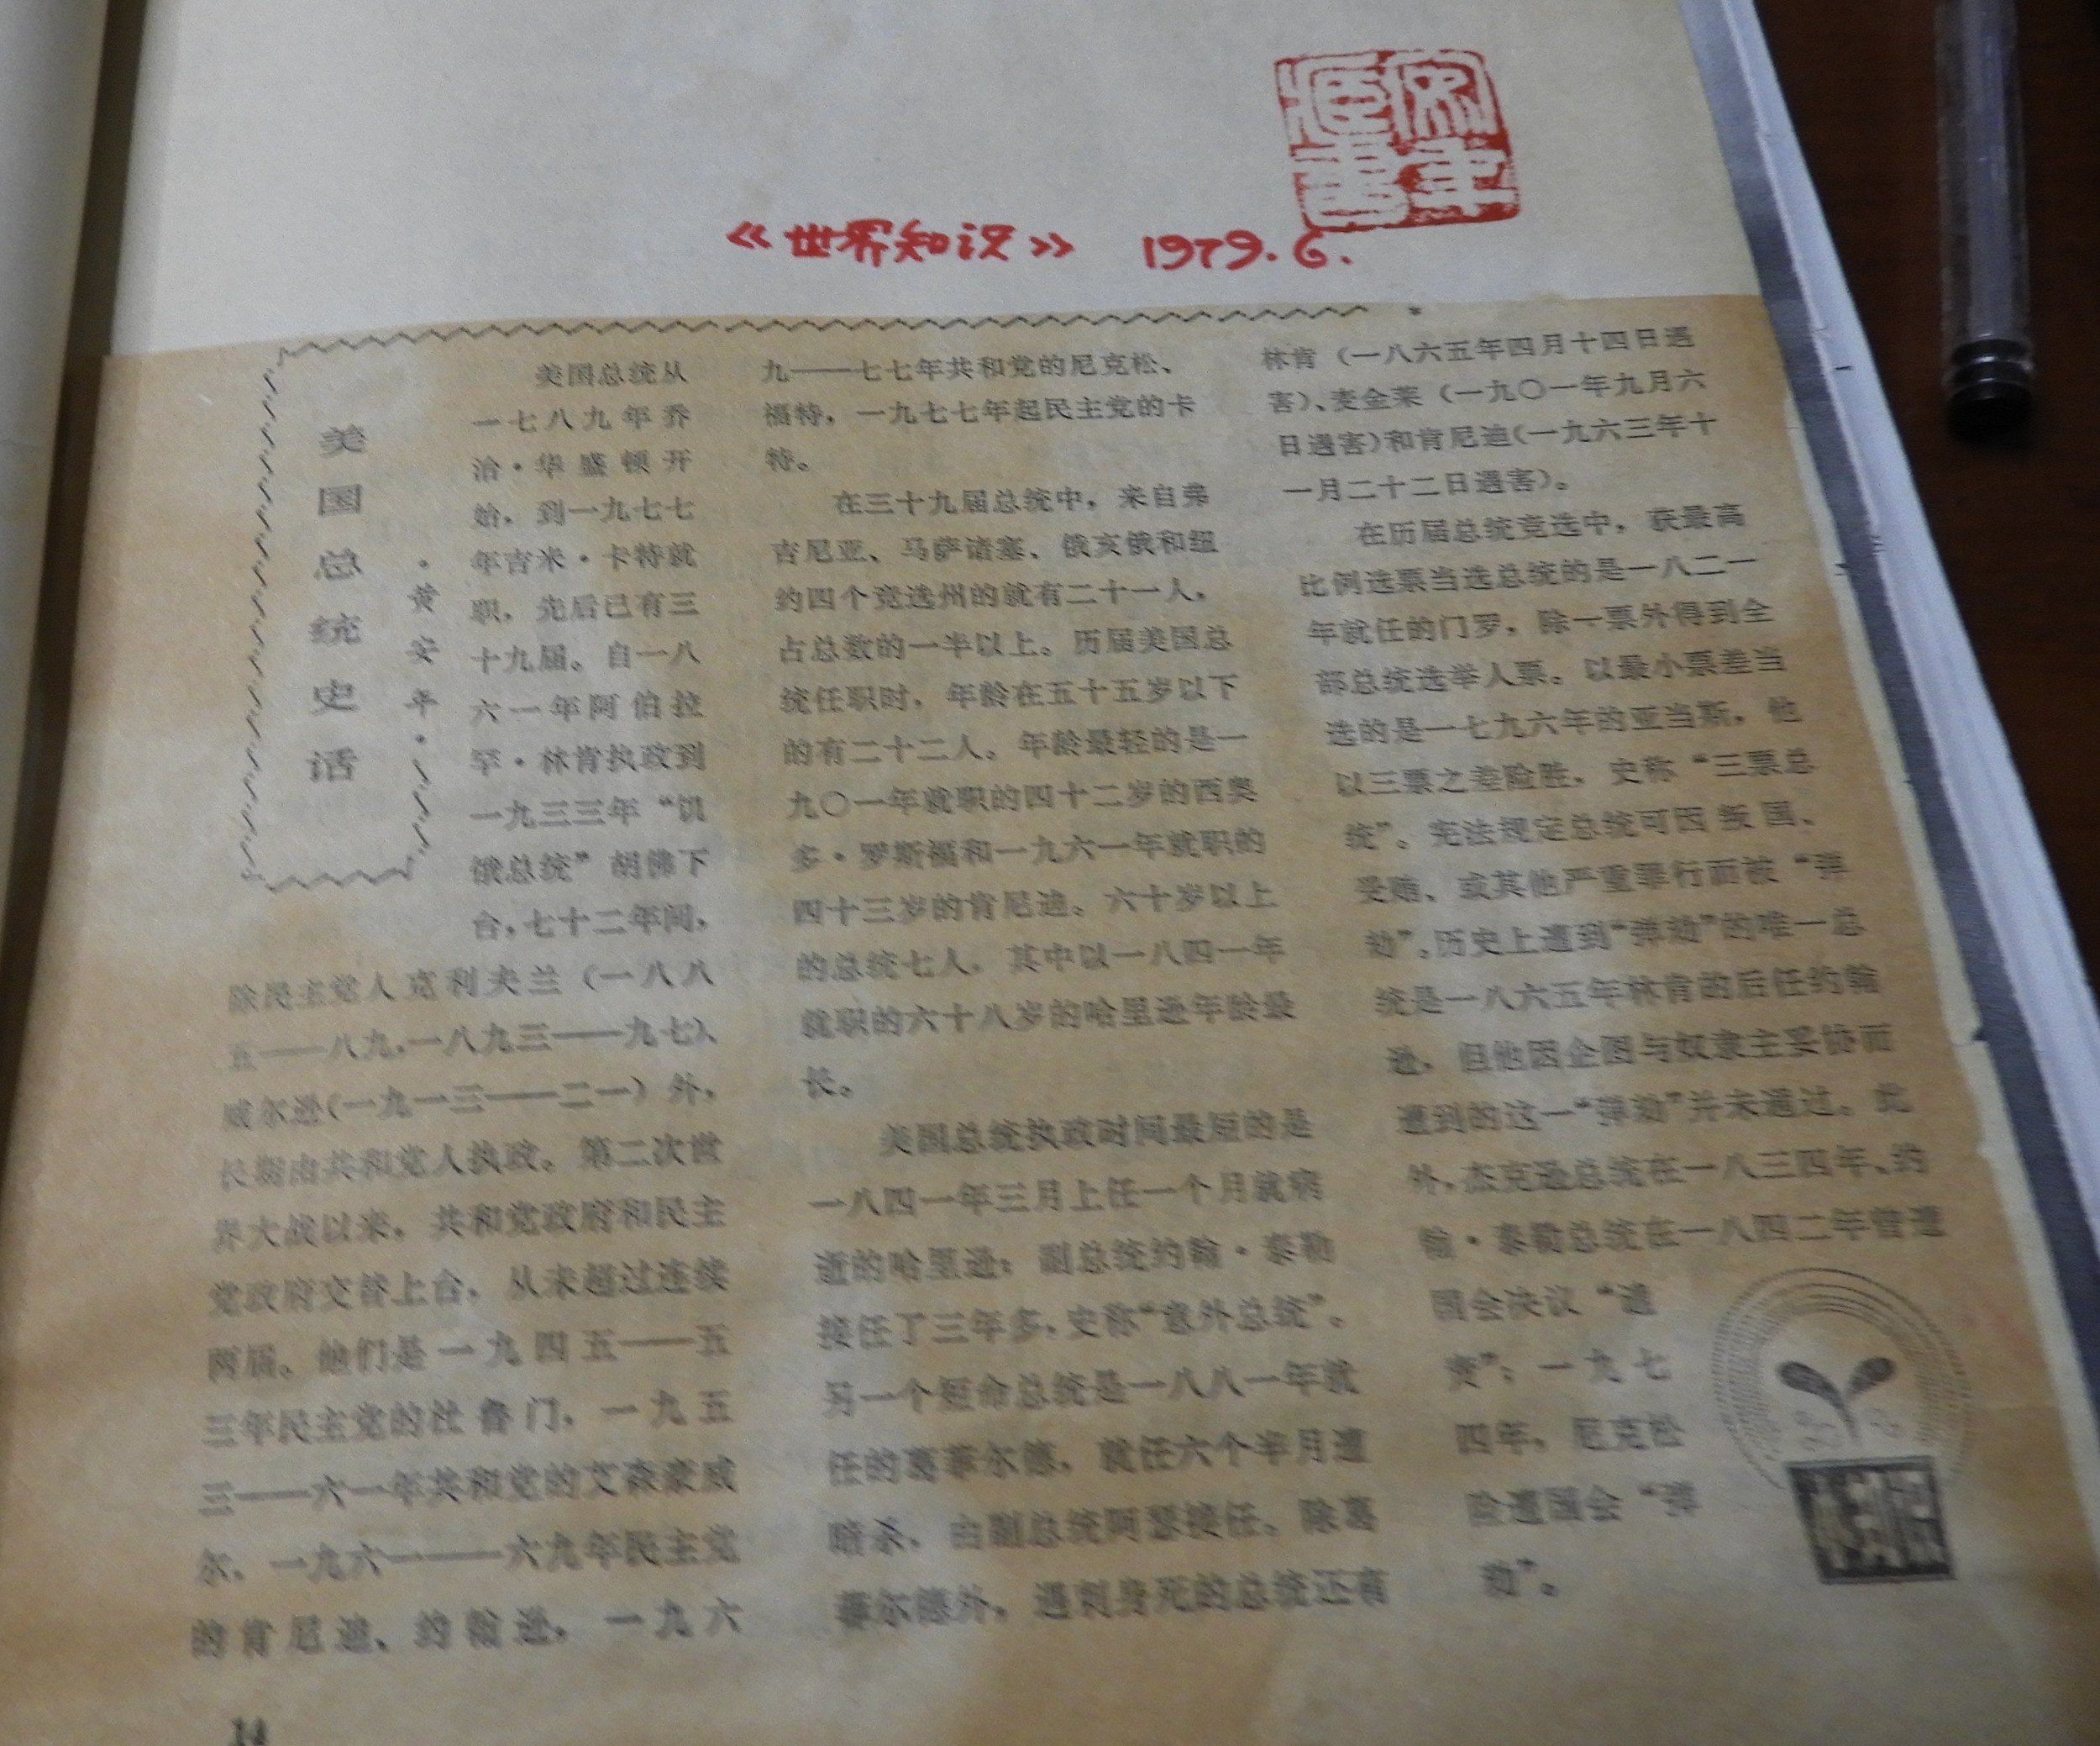 《世界知识》 1979.6.
安年
藏书
美国总统史话
·黄安年·
美国总统从
一七八九年乔
治·华盛顿开
始，到一九七七
年吉米·卡特就
职，先后已有三
十九届。自一八
六一年阿伯拉
罕·林肯执政到
一九三三年“饥
饿总统”胡佛下
台，七十二年间，
除民主党人克利夫兰（一八八
五——八九，一八九三——九七）、
威尔逊（一九一三——二一）外，
长期由共和党人执政。第二次世
界大战以来，共和党政府和民主
党政府交替上台，从未超过连续
两届。他们是一九四五——五
三年民主党的杜鲁门，一九五
三——六一年共和党的艾森豪威
尔，一九六一——六九年民主党
的肯尼迪、约翰逊，一九六
九——七七年共和党的尼克松、
福特，一九七七年起民主党的卡
特。
在三十九届总统中，来自弗
吉尼亚、马萨诸塞、俄亥俄和纽
约四个竞选州的就有二十一人，
占总数的一半以上。历届美国总
统任职时，年龄在五十五岁以下
的有二十二人。年龄最轻的是一
九〇一年就职的四十二岁的西奥
多·罗斯福和一九六一年就职的
四十三岁的肯尼迪。六十岁以上
的总统七人，其中以一八四一年
就职的六十八岁的哈里逊年龄最
长。
美国总统执政时间最短的是
一八四一年三月上任一个月就病
逝的哈里逊；副总统约翰·泰勒
接任了三年多，史称“意外总统”。
另一个短命总统是一八八一年就
任的葛菲尔德，就任六个半月遭
暗杀，由副总统阿瑟接任。除葛
菲尔德外，遇刺身死的总统还有
林肯（一八六五年四月十四日遇
害）、麦金莱（一九〇一年九月六
日遇害）和肯尼迪（一九六三年十
一月二十二日遇害）。
在历届总统竞选中，获最高
比例选票当选总统的是一八二一
年就任的门罗，除一票外得到全
部总统选举人票。以最小票差当
选的是一七九六年的亚当斯，他
以三票之差险胜，史称“三票总
统”。宪法规定总统可因叛国、
受贿、或其他严重罪行而被“弹
劾”。历史上遭到“弹劾”的唯一总
统是一八六五年林肯的后任约翰
逊，但他因企图与奴隶主妥协而
遭到的这一“弹劾”并未通过。此
外，杰克逊总统在一八三四年、约
翰·泰勒总统在一八四二年曾遭
国会决议“谴
责”；一九七
四年，尼克松
险遭国会“弹
劾”。
14